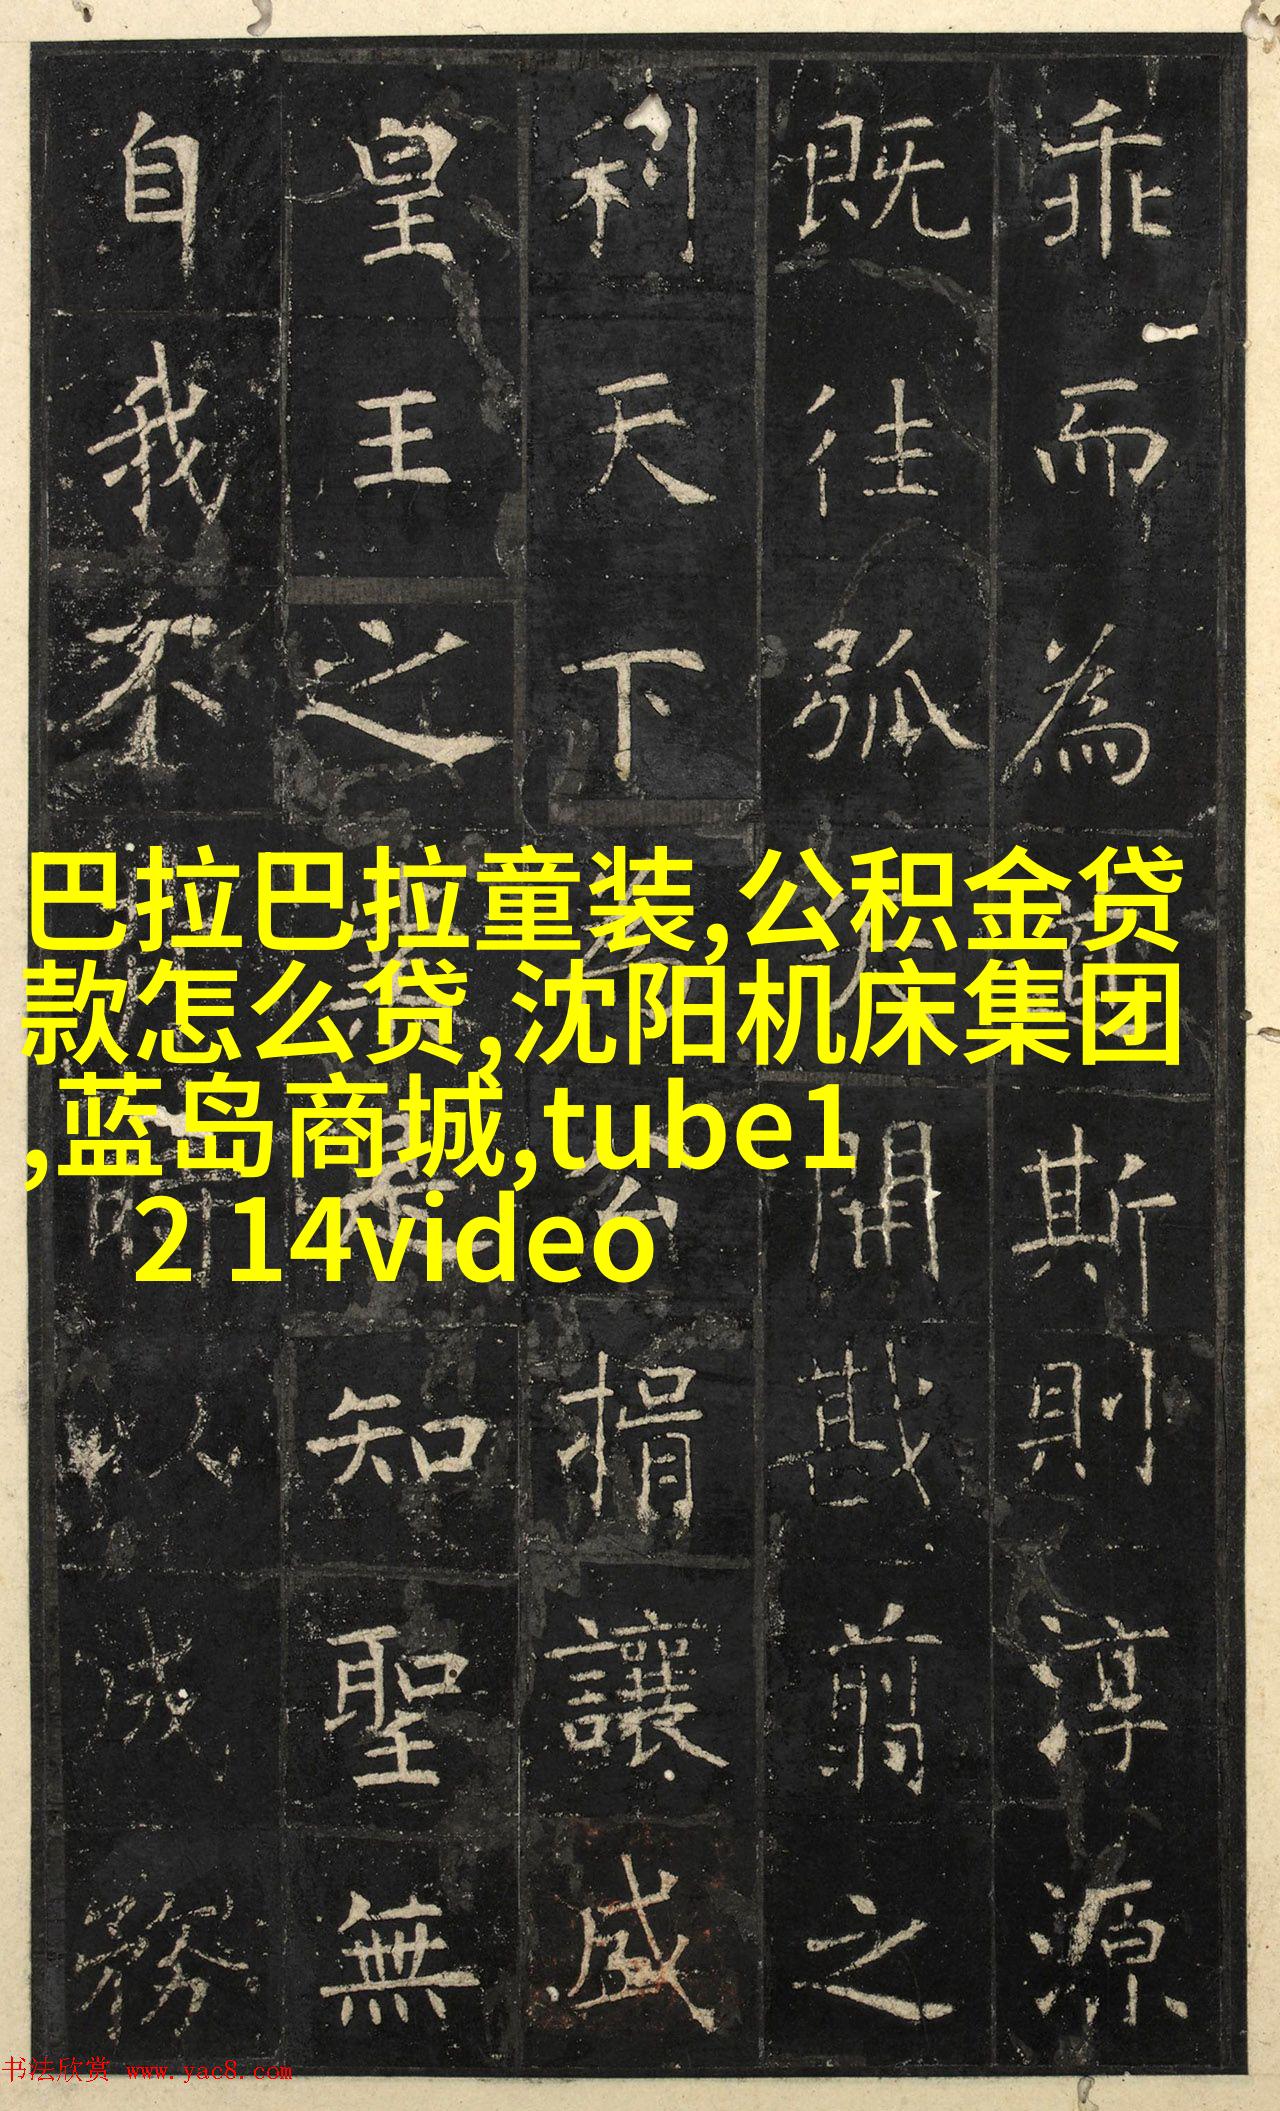 乖而為斯則淳源
既往弧開戡翦之
利天下捐讓盛
皇王之知聖無
自我不
巴拉巴拉童装,公积金贷
款怎么贷,沈阳机床集团
,蓝岛商城,tube1
2 14video
书法欣赏 www.yac8.com